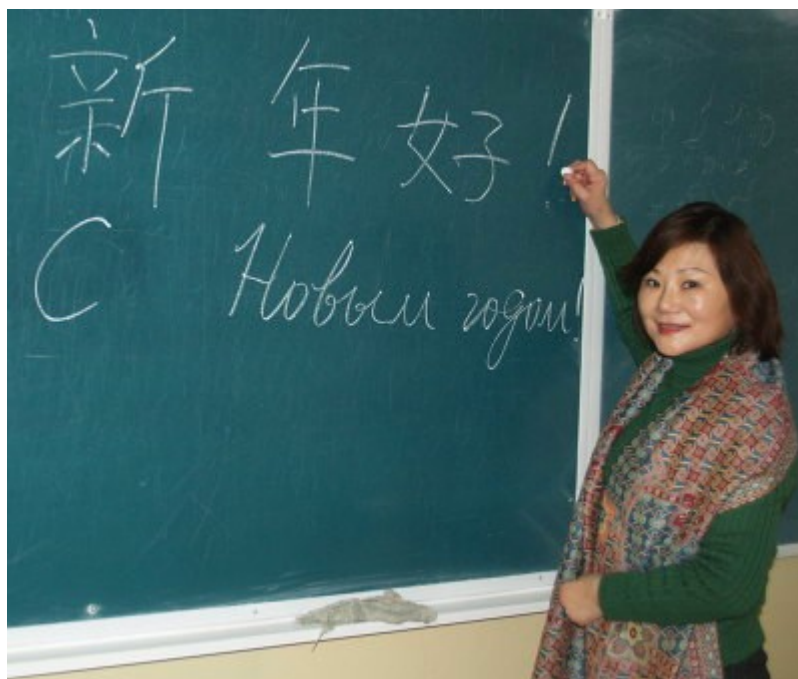 新年好!
С Новым годом!